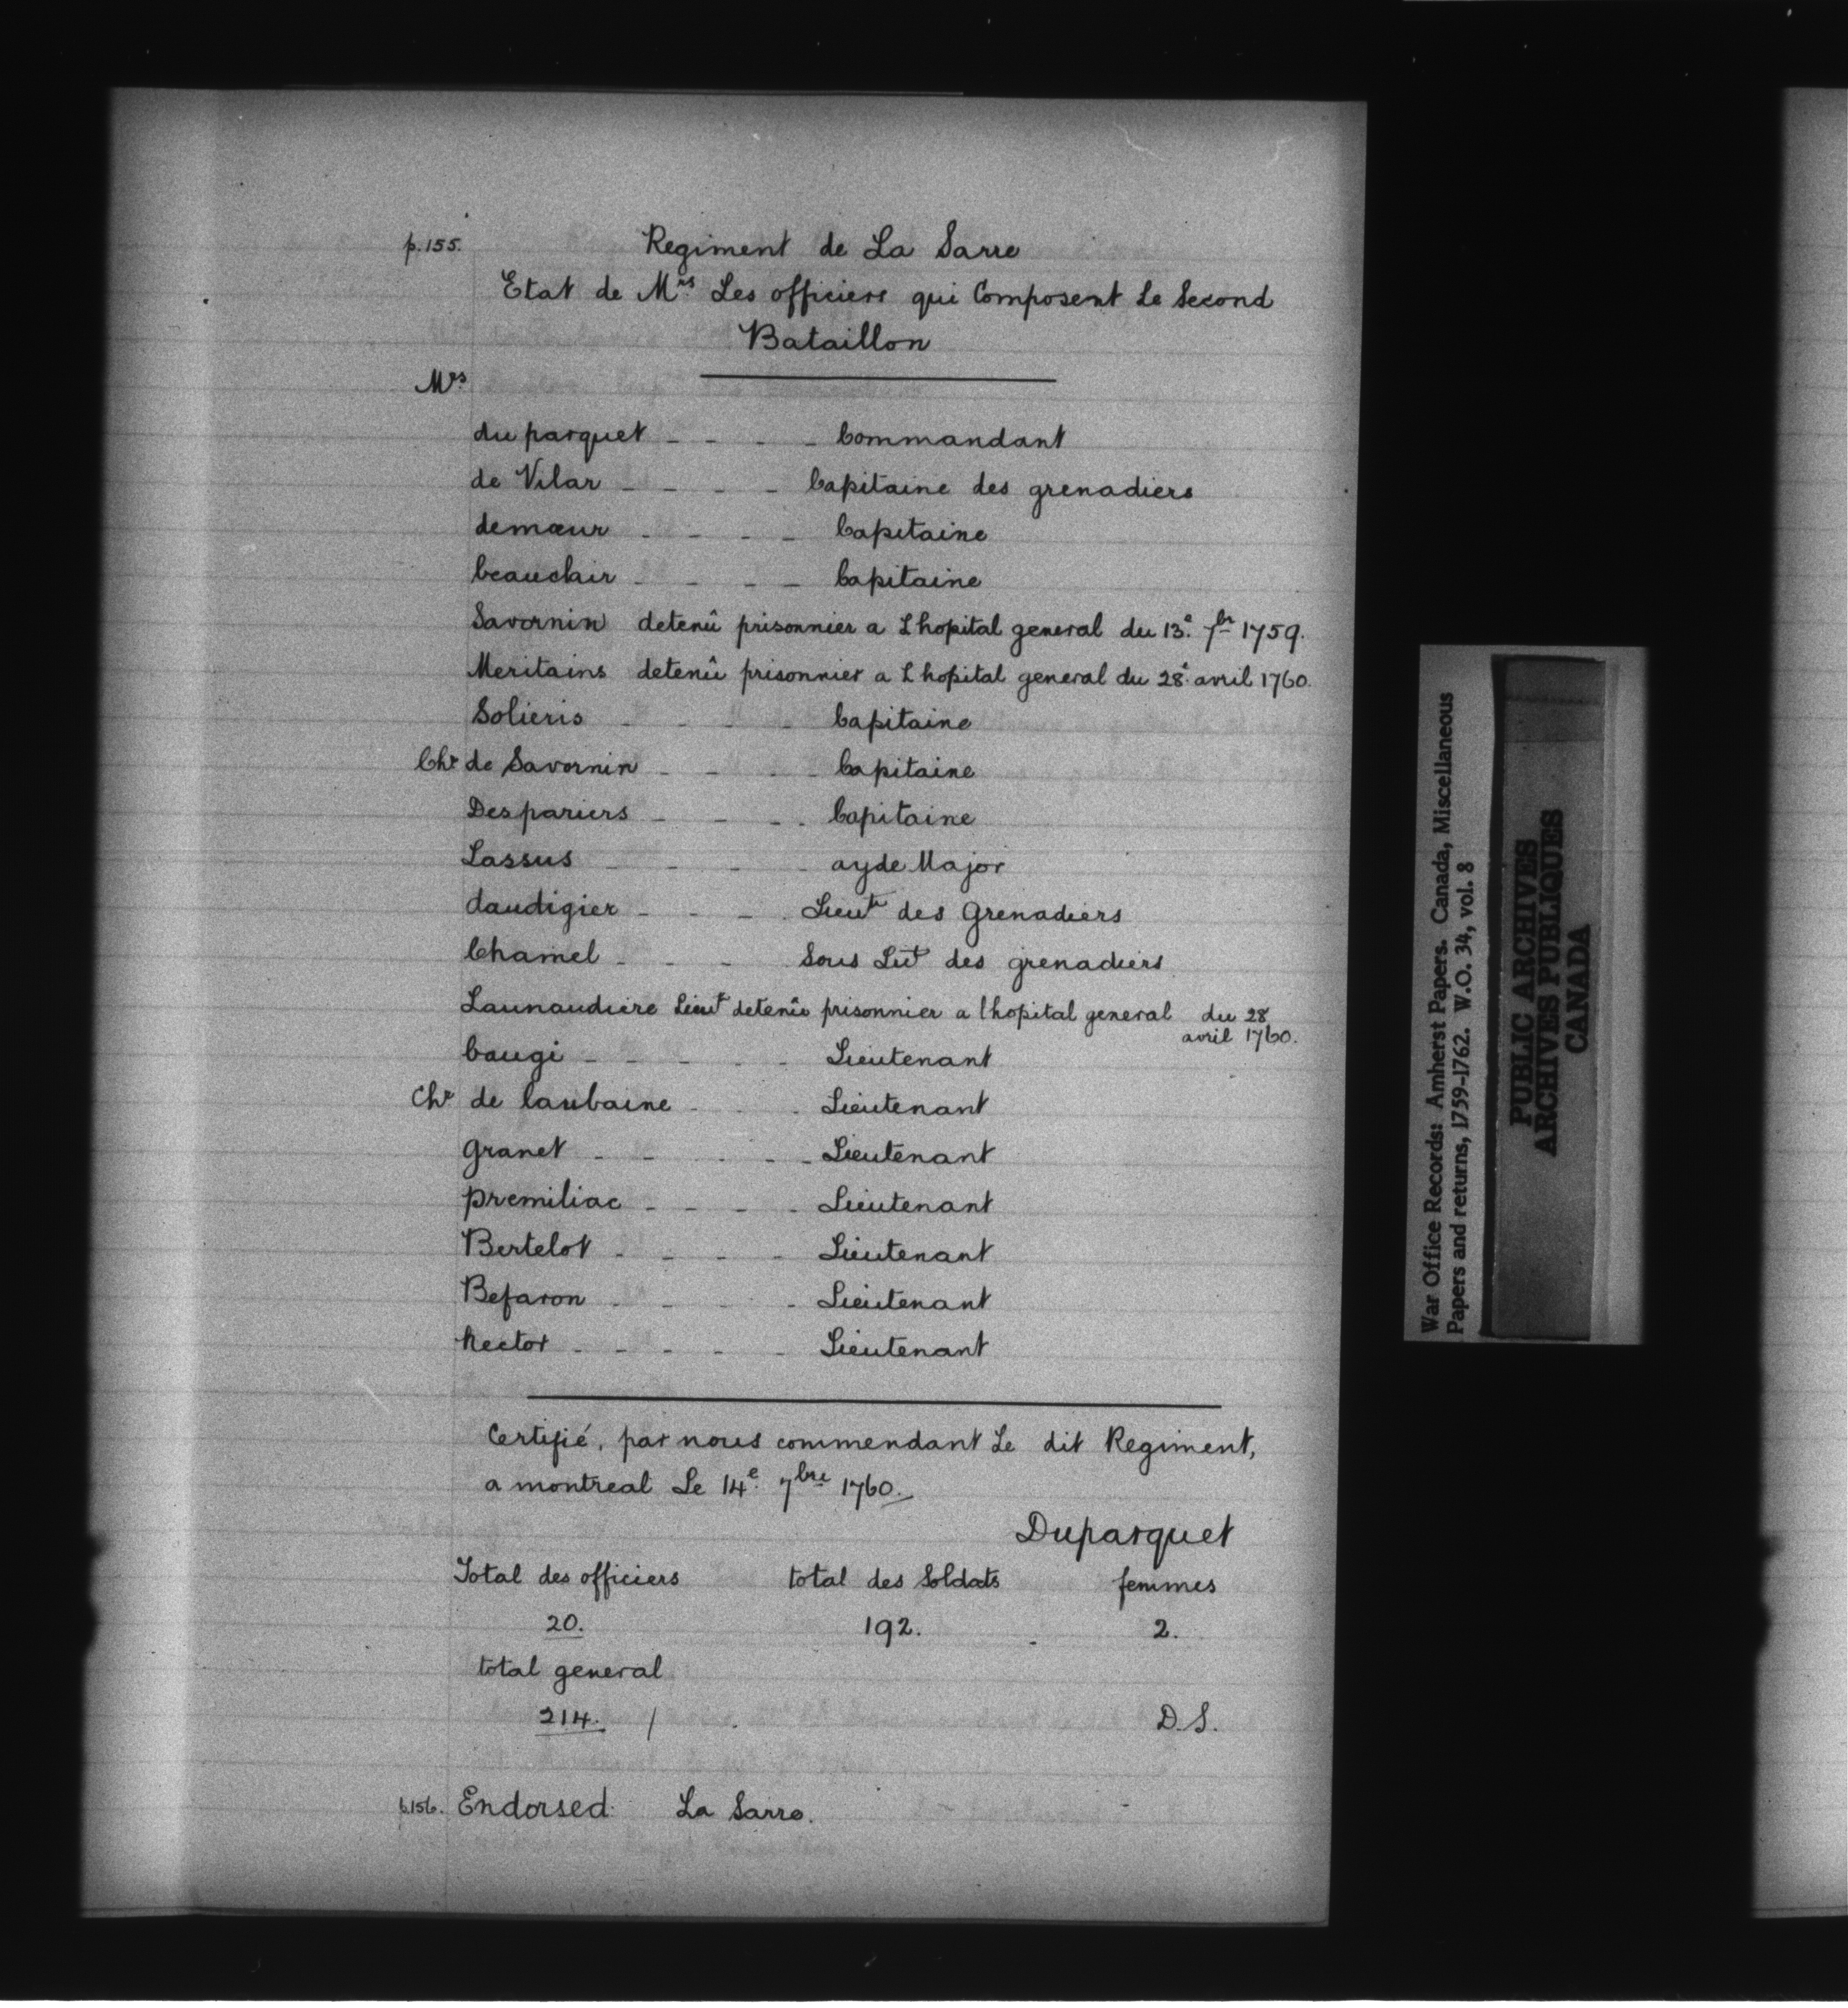 p.155. Regiment de La Sarre
Etat de Mrs Les officiers qui Composent Le Second
Bataillon
Mrs
du parquet - - - - Commandant
de Vilar - - - - Capitaine des grenadiers
demœur - - - - Capitaine
beauclair - - - - Capitaine
Savornin detenû prisonnier a L hopital general du 13e. 7br 1759.
Meritains detenû prisonnier a L hopital general du 28e. avril 1760.
Solieris - - - - Capitaine
Chr de Savornin - - - - Capitaine
Despariers - - - - Capitaine
Lassus - - - - ayde Major
daudigier - - - - Lieut des Grenadiers
Chamel - - - Sous Lit des grenadiers
Launaudiere Lieut detenû prisonnier a l hopital general du 28
avril 1760.
baugi - - - - - Lieutenant
Chr de laubaine - - - Lieutenant
granet - - - - - Lieutenant
premiliac - - - - Lieutenant
Bertelot - - - - Lieutenant
Befaron - - - - Lieutenant
hector - - - - - Lieutenant
Certifié, par nous commendant Le dit Regiment,
a montreal Le 14e. 7bre 1760.
Duparquet
Total des officiers total des Soldats femmes
20. 192. 2.
total general
214. / D.S.
p.156. Endorsed: La Sarre.
War Office Records: Amherst Papers. Canada, Miscellaneous
Papers and returns, 1759-1762. W.O. 34, vol. 8
PUBLIC ARCHIVES
ARCHIVES PUBLIQUES
CANADA